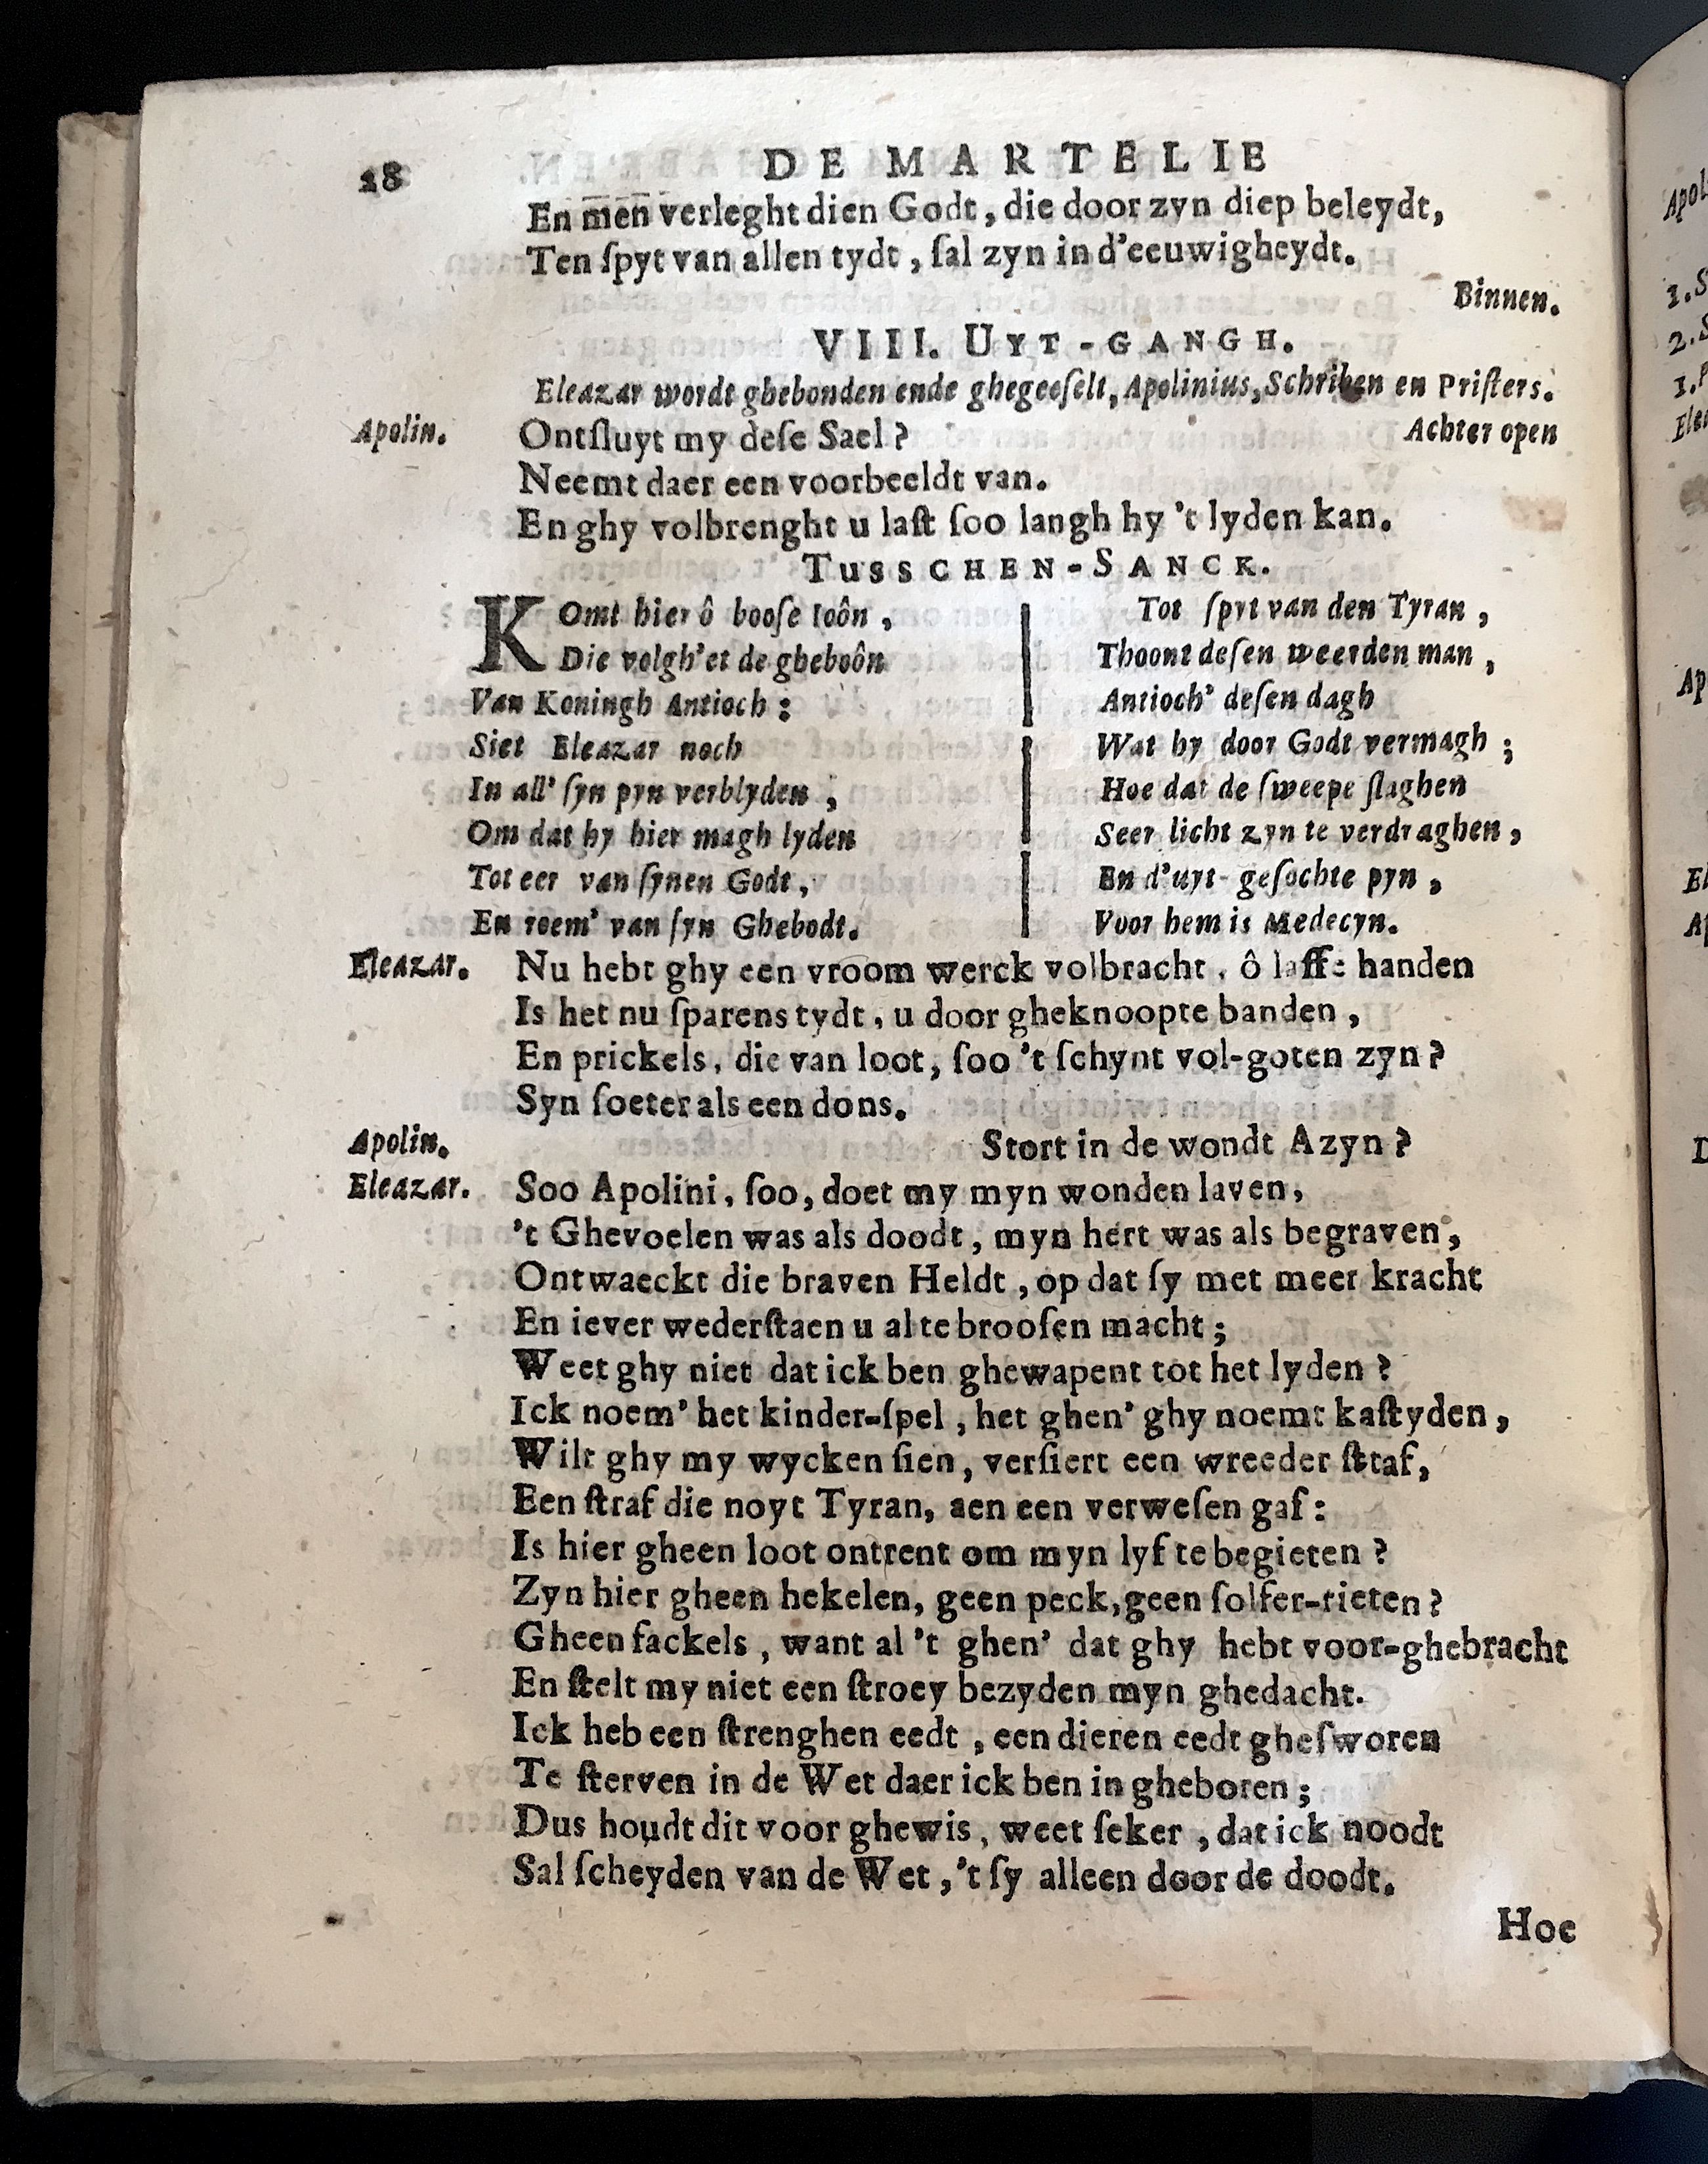 28 DE MARTELIE
En men verleght dien Godt, die door zyn diep beleydt,
Ten ſpyt van allen tydt, ſal zyn in d'eeuwigheydt.
Binnen.
VIII. UYT-GANGH.
Eleazar wordt ghebonden ende ghegeeſelt, Apolinius, Schriben en Priſters.
Apolin. Ontſluyt my deſe Sael? Achter open
Neemt daer een voorbeeldt van.
En ghy volbrenght u laſt ſoo langh hy 't lyden kan.
TUSSCHEN-SANCK.
KOmt hier ô booſe Ioôn,
Die volgh'et de gheboôn
Van Koningh Antioch:
Siet Eleazar noch
In all' ſyn pyn verblyden,
Om dat hy hier magh lyden
Tot eer van ſynen Godt,
En roem' van ſyn Ghebodt.
Tot ſpyt van den Tyran,
Thoont deſen weerden man,
Antioch' deſen dagh
Wat hy door Godt vermagh;
Hoe dat de ſweepe ſlaghen
Seer licht zyn te verdraghen,
En d'uyt-geſochte pyn,
Voor hem is Medecyn.
Eleazar. Nu hebt ghy een vroom werck volbracht, ô laffe handen
Is het nu ſparens tydt, u door gheknoopte banden,
En prickels, die van loot, ſoo 't ſchynt vol-goten zyn?
Syn ſoeter als een dons.
Apolin. Stort in de wondt Azyn?
Eleazar. Soo Apolini, ſoo, doet my myn wonden laven,
't Ghevoelen was als doodt, myn hert was als begraven,
Ontwaeckt die braven Heldt, op dat ſy met meer kracht
En iever wederſtaen u al te brooſen macht;
Weet ghy niet dat ick ben ghewapent tot het lyden?
Ick noem' het kinder-ſpel, het ghen' ghy noemt kaſtyden,
Wilt ghy my wycken ſien, verſiert een wreeder ſttaf,
Een ſtraf die noyt Tyran, aen een verweſen gaf:
Is hier gheen loot ontrent om myn lyf te begieten?
Zyn hier gheen hekelen, geen peck, geen ſolfer-rieten?
Gheen fackels, want al 't ghen' dat ghy hebt voor-ghebracht
En ſtelt my niet een ſtroey bezyden myn ghedacht.
Ick heb een ſtrenghen eedt, een dieren eedt gheſworen
Te ſterven in de Wet daer ick ben in gheboren;
Dus houdt dit voor ghewis, weet ſeker, dat ick noodt
Sal ſcheyden van de Wet, 't ſy alleen door de doodt.
Hoe